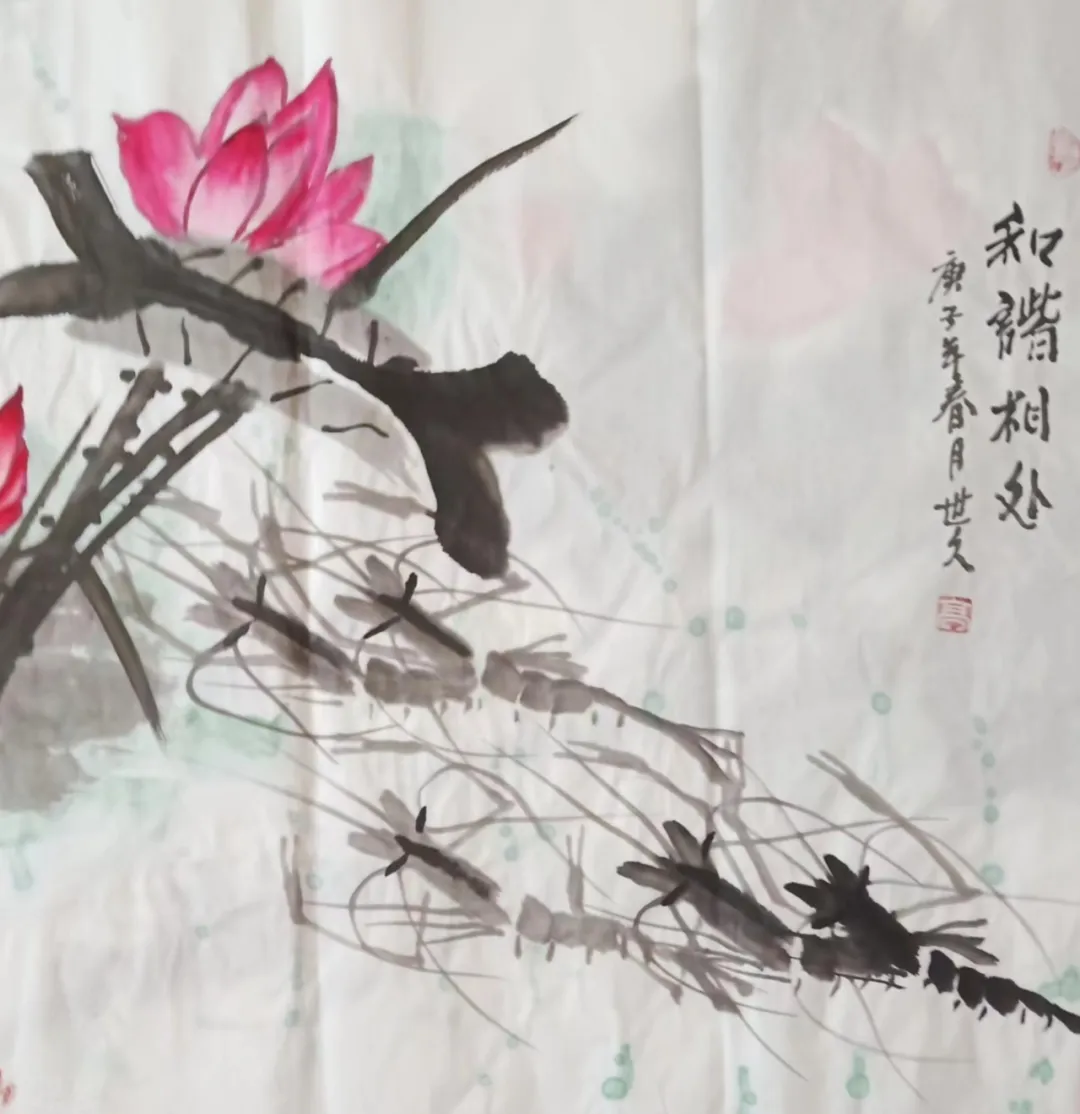 和諧相处
庚子年春月世久